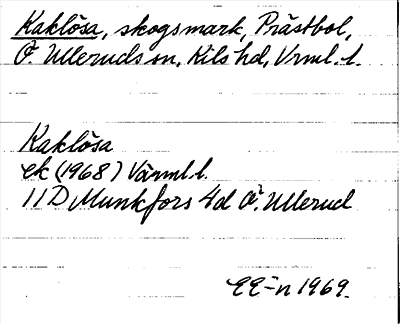 Kaklösa, skogsmark, Prästbol,
Ö. Ulleruds sn, Kils hd, Vrml. l.
Kaklösa
ek (1968) Värml. l.
11D Munkfors 4d Ö. Ullerud
EE-n 1969.